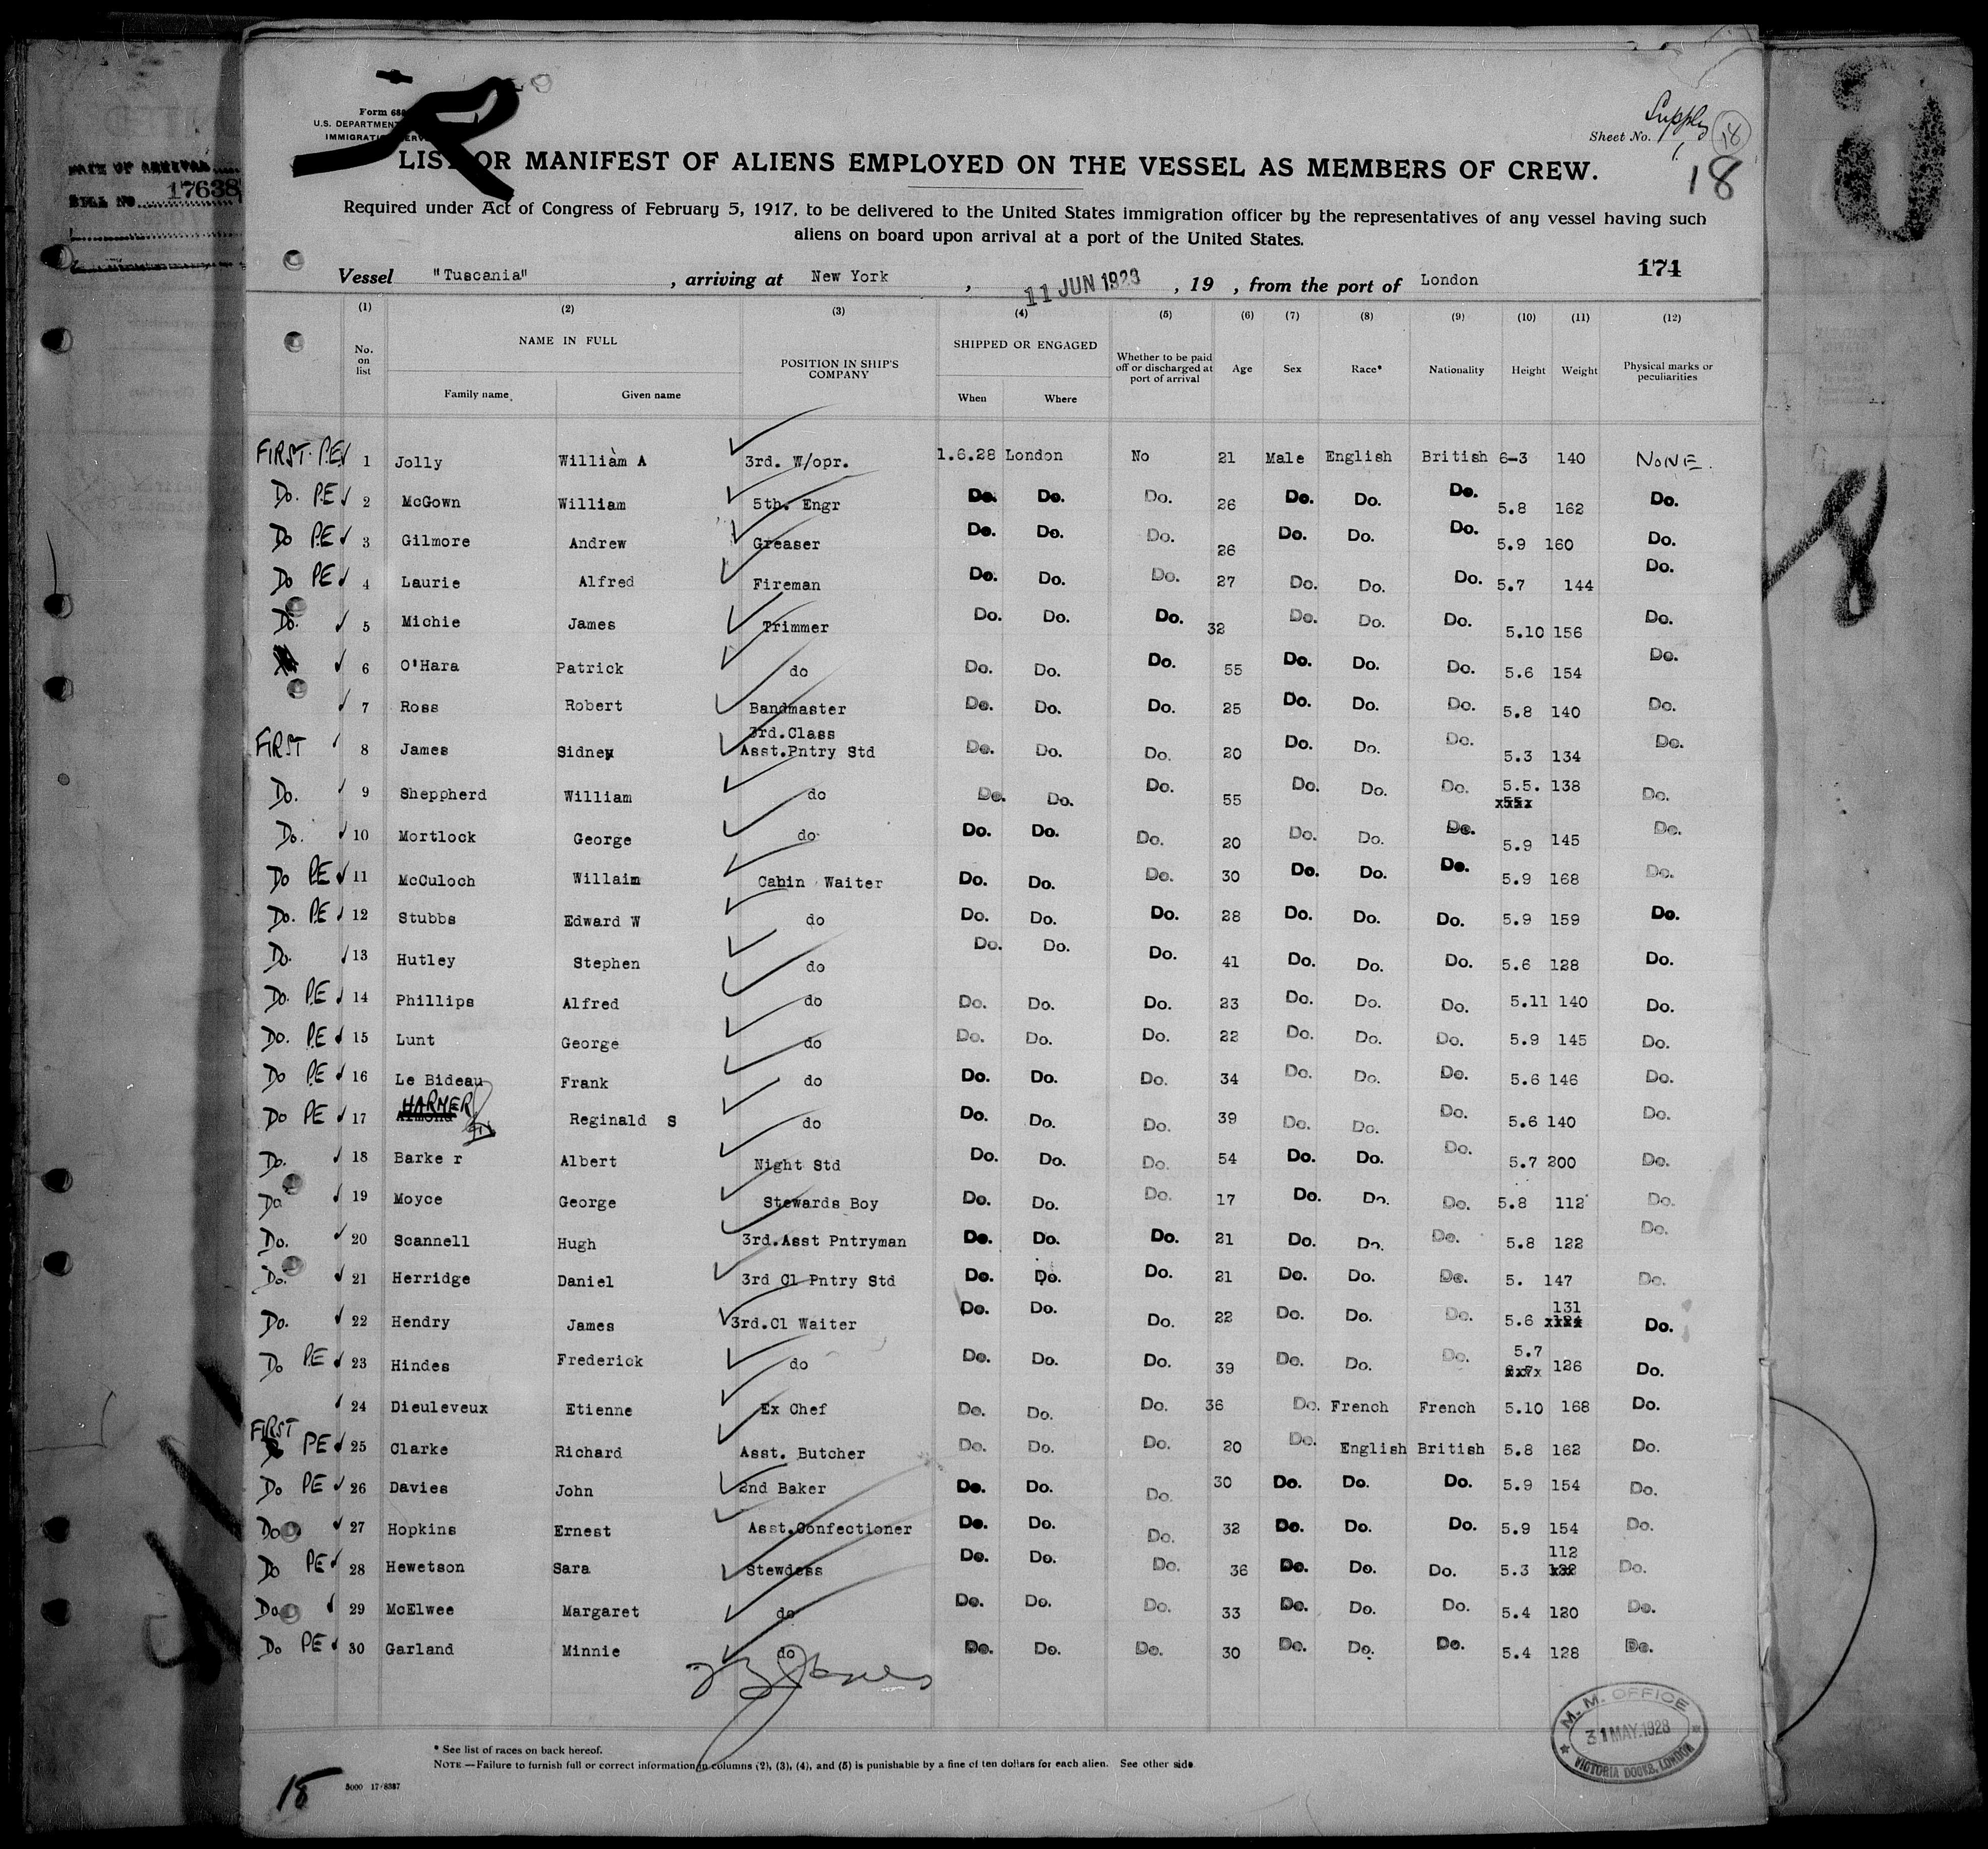 DATE OF ARRIVAL
BILL NO. 17638
Form 688
U.S. DEPARTMENT
Supply
Sheet No. 18
18
LIST OR MANIFEST OF ALIENS EMPLOYED ON THE VESSEL AS MEMBERS OF CREW.
Required under Act of Congress of February 5, 1917, to be delivered to the United States immigration officer by the representatives of any vessel having such
aliens on board upon arrival at a port of the United States.
174
Vessel "Tuscania" , arriving at New York , 11 JUN 1928 , 19 , from the port of London
(1) (2) (3) (4) (5) (6) (7) (8) (9) (10) (11) (12)
No. on list NAME IN FULL Family name Given name POSITION IN SHIP'S COMPANY SHIPPED OR ENGAGED When Where Whether to be paid off or discharged at port of arrival Age Sex Race* Nationality Height Weight Physical marks or peculiarities
FIRST P.E. 1 Jolly William A 3rd. W/opr. 1.6.28 London No 21 Male English British 6-3 140 NONE.
Do. P.E 2 McGown William 5th. Engr Do. Do. Do. 26 Do. Do. Do. 5.8 162 Do.
Do P.E 3 Gilmore Andrew Greaser Do. Do. Do. 26 Do. Do. Do. 5.9 160 Do.
Do PE 4 Laurie Alfred Fireman Do. Do. Do. 27 Do. Do. Do. 5.7 144 Do.
Do. 5 Michie James Trimmer Do. Do. Do. 32 Do. Do. Do. 5.10 156 Do.
6 O'Hara Patrick do Do. Do. Do. 55 Do. Do. Do. 5.6 154 Do.
7 Ross Robert Bandmaster Do. Do. Do. 25 Do. Do. Do. 5.8 140 Do.
FIRST 8 James Sidney 3rd.Class Asst.Pntry Std Do. Do. Do. 20 Do. Do. Do. 5.3 134 Do.
Do. 9 Sheppherd William do Do. Do. Do. 55 Do. Do. Do. 5.5. 138 Do.
Do. 10 Mortlock George do Do. Do. Do. 20 Do. Do. Do. 5.9 145 Do.
Do PE 11 McCuloch Willaim Cabin Waiter Do. Do. Do. 30 Do. Do. Do. 5.9 168 Do.
Do. P.E 12 Stubbs Edward W do Do. Do. Do. 28 Do. Do. Do. 5.9 159 Do.
Do. 13 Hutley Stephen do Do. Do. Do. 41 Do. Do. Do. 5.6 128 Do.
Do. P.E 14 Phillips Alfred do Do. Do. Do. 23 Do. Do. Do. 5.11 140 Do.
Do. P.E 15 Lunt George do Do. Do. Do. 22 Do. Do. Do. 5.9 145 Do.
Do P.E 16 Le Bideau Frank do Do. Do. Do. 34 Do. Do. Do. 5.6 146 Do.
Do PE 17 HARMER Almond Reginald S do Do. Do. Do. 39 Do. Do. Do. 5.6 140 Do.
Do. 18 Barke r Albert Night Std Do. Do. Do. 54 Do. Do. Do. 5.7 200 Do.
Do 19 Moyce George Stewards Boy Do. Do. Do. 17 Do. Do. Do. 5.8 112 Do.
Do. 20 Scannell Hugh 3rd.Asst Pntryman Do. Do. Do. 21 Do. Do. Do. 5.8 122 Do.
Do. 21 Herridge Daniel 3rd Cl Pntry Std Do. Do. Do. 21 Do. Do. Do. 5. 147 Do.
Do. 22 Hendry James 3rd.Cl Waiter Do. Do. Do. 22 Do. Do. Do. 5.6 131 Do.
Do P.E 23 Hindes Frederick do Do. Do. Do. 39 Do. Do. Do. 5.7 126 Do.
24 Dieuleveux Etienne Ex Chef Do. Do. Do. 36 Do. French French 5.10 168 Do.
FIRST PE 25 Clarke Richard Asst. Butcher Do. Do. Do. 20 Do. English British 5.8 162 Do.
Do PE 26 Davies John 2nd Baker Do. Do. Do. 30 Do. Do. Do. 5.9 154 Do.
Do 27 Hopkins Ernest Asst.Confectioner Do. Do. Do. 32 Do. Do. Do. 5.9 154 Do.
Do PE 28 Hewetson Sara Stewdess Do. Do. Do. 36 Do. Do. Do. 5.3 112 Do.
Do 29 McElwee Margaret do Do. Do. Do. 33 Do. Do. Do. 5.4 120 Do.
Do PE 30 Garland Minnie do Do. Do. Do. 30 Do. Do. Do. 5.4 128 Do.
M. M. OFFICE
31 MAY.1928
VICTORIA DOCKS, LONDON
* See list of races on back hereof.
NOTE.—Failure to furnish full or correct information in columns (2), (3), (4), and (5) is punishable by a fine of ten dollars for each alien. See other side
5000 17/8337
18